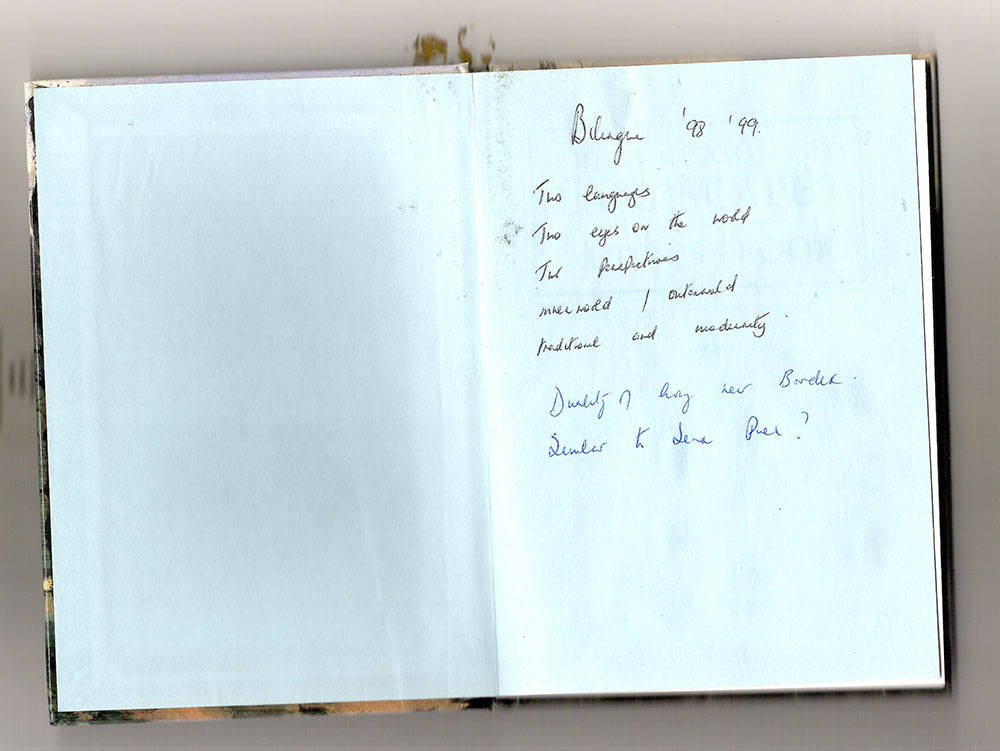 Bilingue '98 '99.
Two languages
Two eyes on the world
Two perspectives
inner world / outerworld
traditional and modernity.
Duality of living near Border.
Similar to